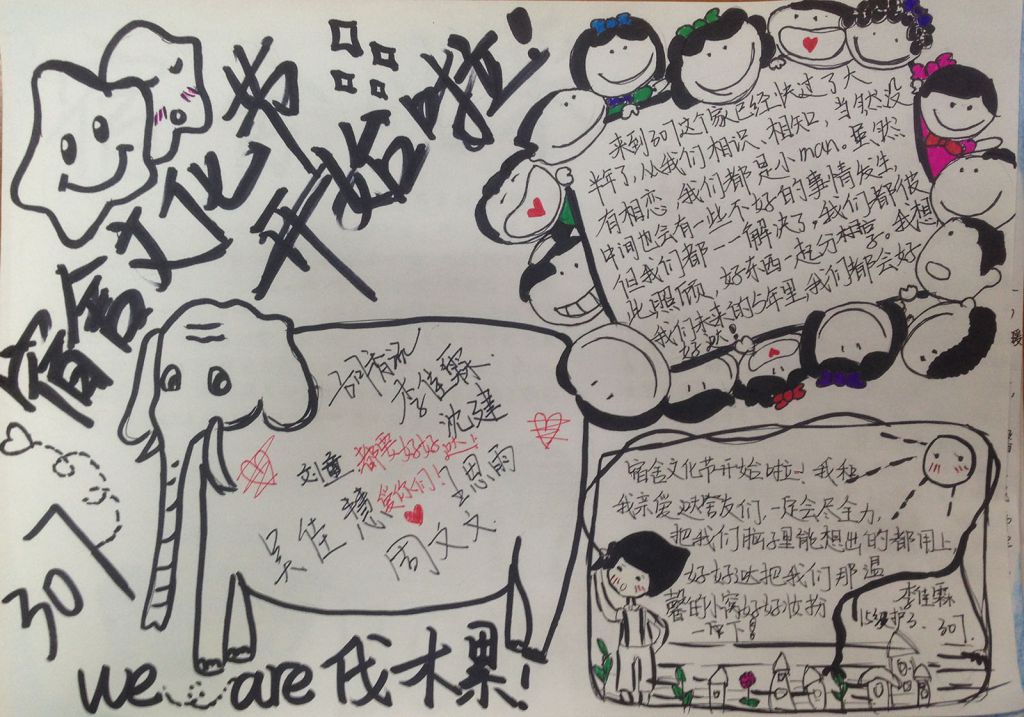 宿舍文化节
开始啦!
307
来到307这个家已经快过了大
半年了,从我们相识、相知,当然没
有相恋,我们都是小man。虽然
中间也会有一些不好的事情发生,
但我们都一一解决了,我们都彼
此照顾,好东西一起分享。我想
我们未来的5年里,我们都会好
好哒!
李佳霖
沈建
刘童
都要好好哒
爱你们!
王思雨
吴佳慧
周文文
宿舍文化节开始啦!我和
我亲爱哒舍友们,一定会尽全力,
把我们脑子里能想出的都用上,
好好哒把我们那温
馨的小窝好好妆扮
一下!
李佳霖
15级护3、307
we are 伐木累!